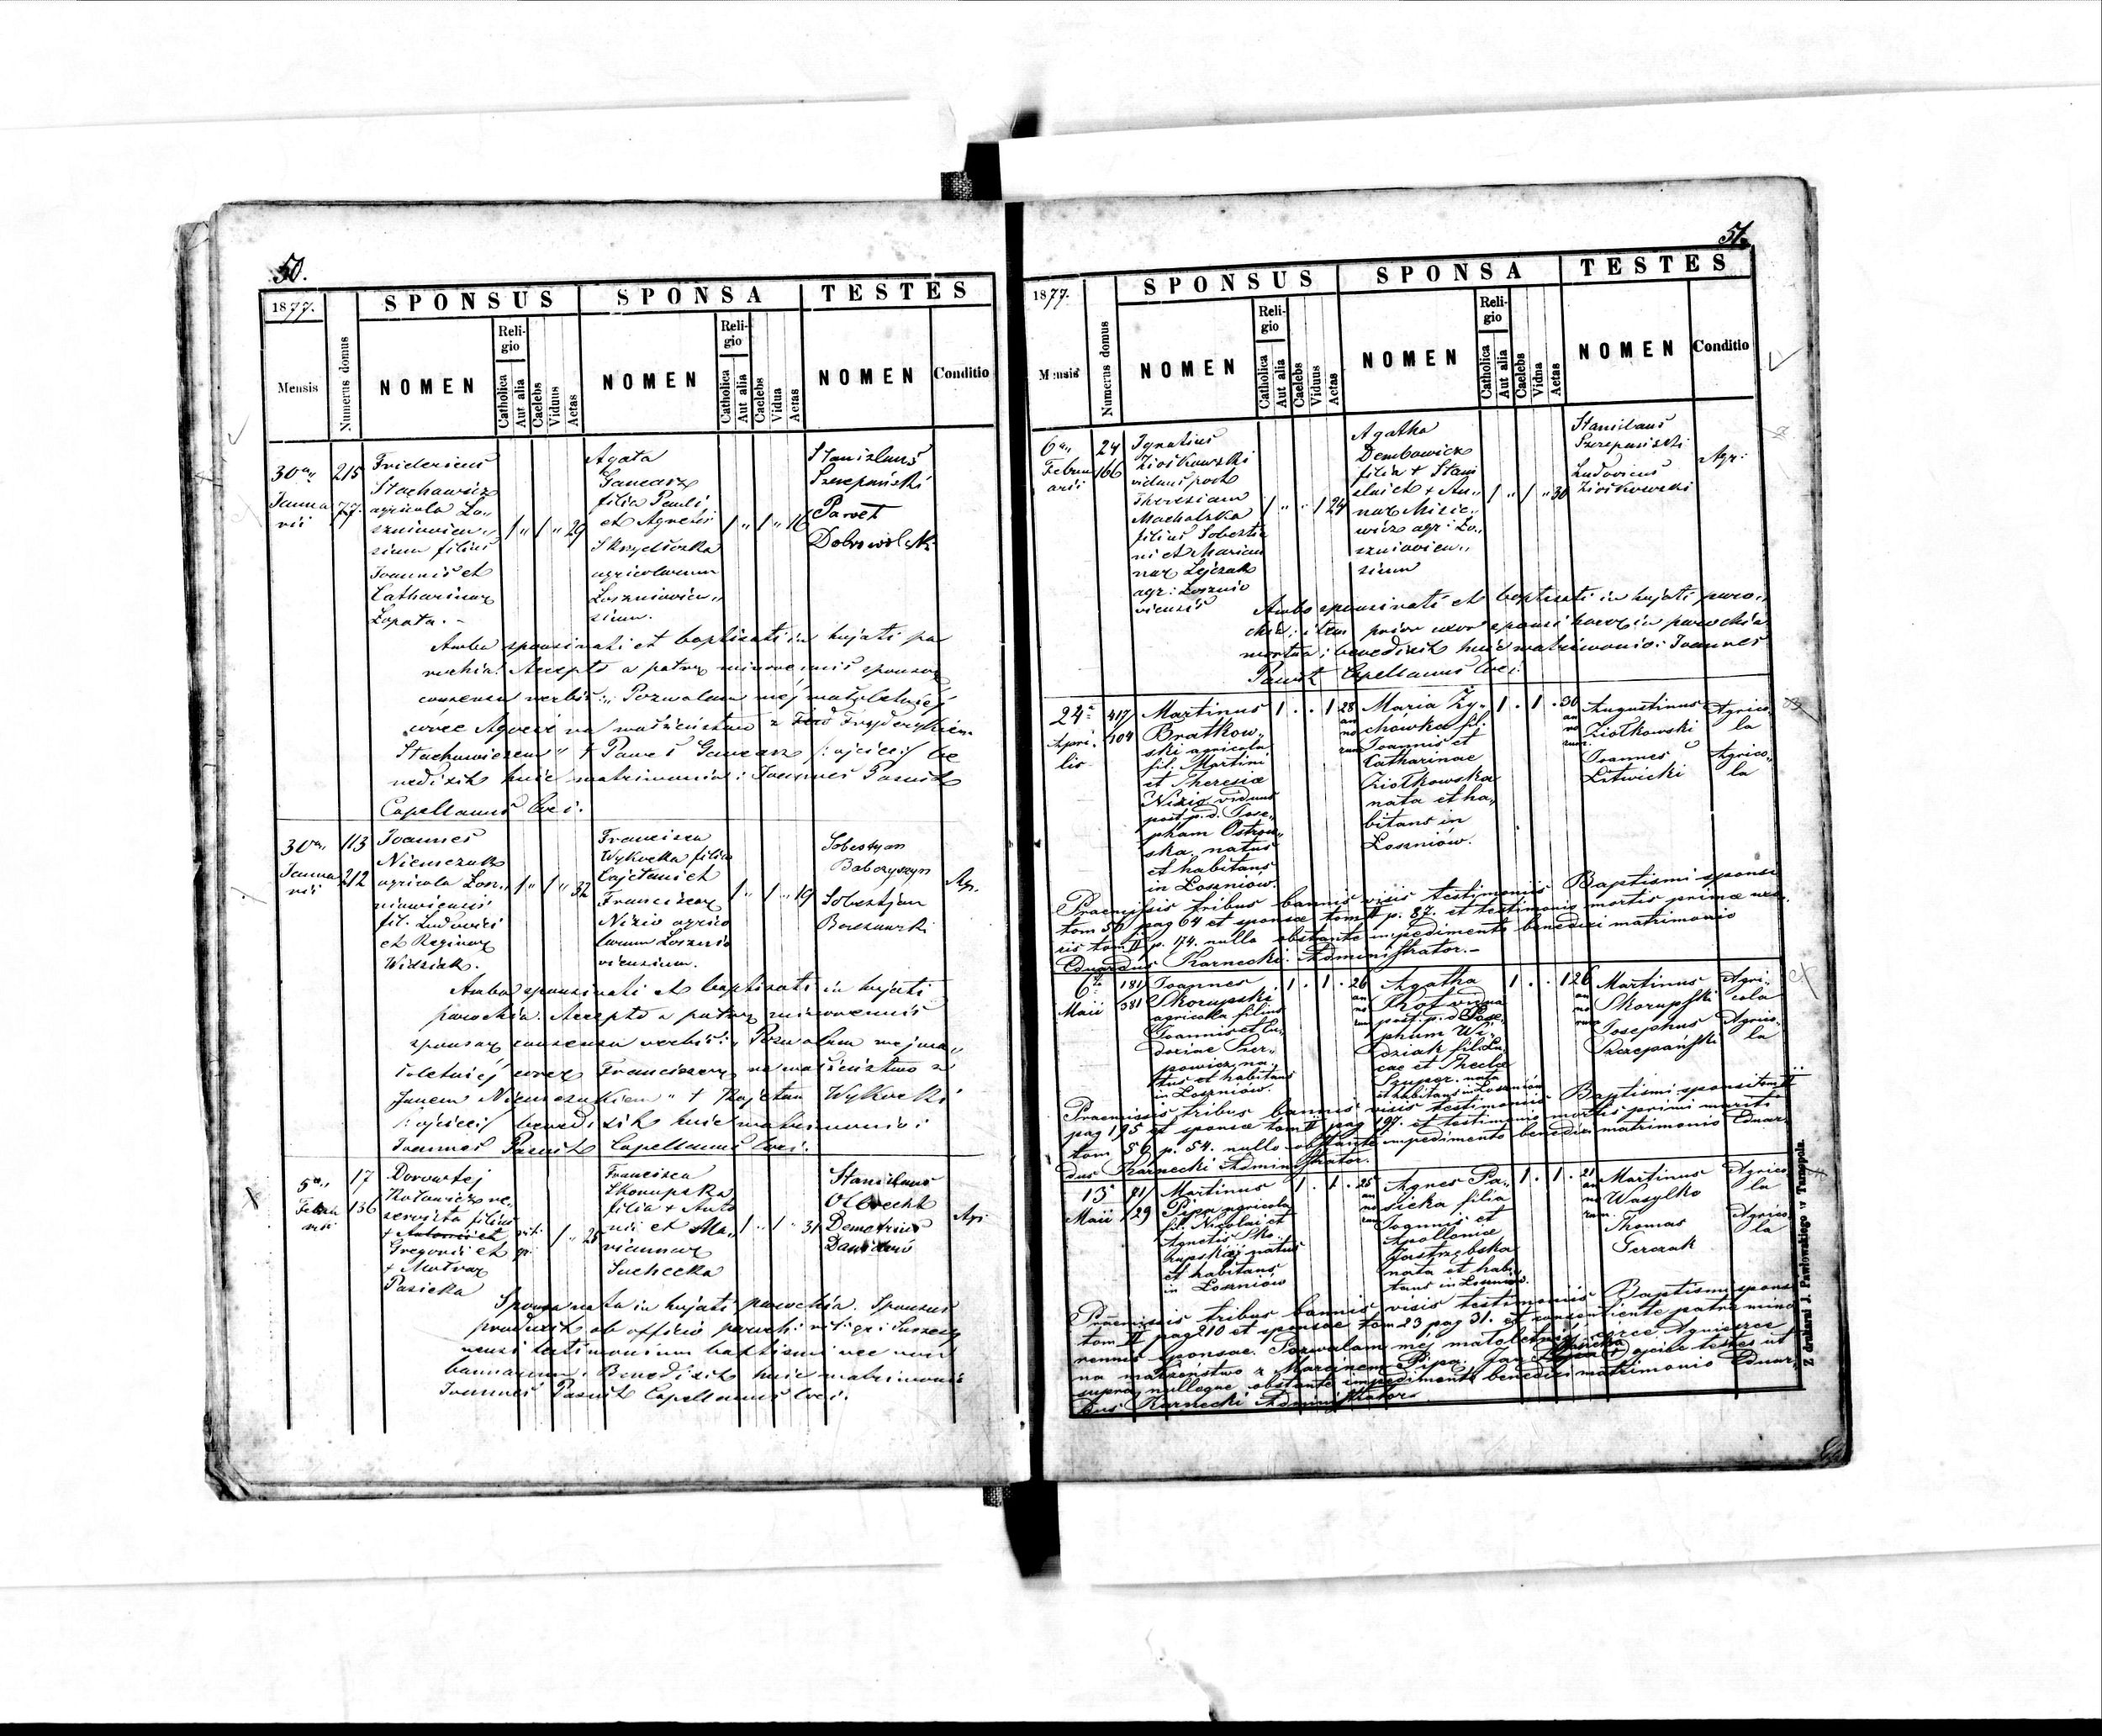 50.
1877.
SPONSUS
SPONSA
TESTES
Mensis
Numerus domus
NOMEN
Religio
Catholica
Aut alia
Caelebs
Viduus
Aetas
NOMEN
Religio
Catholica
Aut alia
Caelebs
Vidua
Aetas
NOMEN
Conditio
30a
Januarii
215
77
Fridericus
Stachowicz
agricola Lo„
szniovien„
sium filius
Joannis et
Catharinae
Łopata.
1 „ 1 „ 29
Agata
Gancarz
filia Pauli
et Agnetis
Skrzeliczka
agricolarum
Loszniovien„
sium.
1 „ 1 „ 16
Stanislaus
Szczepański
Paweł
Dobrowolski
Ambo sponsi nati et baptisati in hujati pa
rochia. Accepto a patre minorennis sponsae
consensu verbis: „Pozwalam mej małoletniej
córce Agacie na małżeństwo z Fryderykiem
Stachowiczem" + Paweł Gancarz /: ojciec :/ be
nedixit huic matrimonio: Joannes Pasiut
Capellanus loci.
30a
Januarii
113
212
Joannes
Niemczuk
agricola Losz„
nioviensis
fil. Ludovici
et Reginae
Widziak.
1 „ 1 „ 32
Francisca
Wykocka filia
Cajetani et
Franciscae
Nizio agrico
larum Loszнio
viensium.
1 „ 1 „ 19
Sobestyan
Babczyszyn
Sobestjan
Boszowski
Agr.
Ambo sponsi nati et baptisati in hujati
parochia. Accepto a patre minorennis
sponsae consensu verbis: „Pozwalam mej ma„
łoletniej córce Franciszce na małżeństwo z
Janem Niemczukiem" + Kajetan Wykocki
/: ojciec :/ benedixit huic matrimonio:
Joannes Pasiut Capellanus loci.
5a
Februarii
17
136
Dorowtej
Kotowicz
filius
Gregorii et
+ Motrae
Pasieka
1 „ 25
Francisca
Skorupska
filia + Anto
nii et Ma„
riannae
Suchecka
1 „ 1 „ 31
Stanislaus
Olbrecht
Demetrius
Agr.
Sponsa nata in hujati parochia. Sponsus
produxit ab officio paroch: rit: gr:
testimonium baptismi nec non
bannorum. Benedixit huic matrimonio
Joannes Pasiut Capellanus loci.
51.
1877.
SPONSUS
SPONSA
TESTES
Mensis
Numerus domus
NOMEN
Religio
Catholica
Aut alia
Caelebs
Viduus
Aetas
NOMEN
Religio
Catholica
Aut alia
Caelebs
Vidua
Aetas
NOMEN
Conditio
6a
Februarii
24
166
Ignatius
Ziółkowski
viduus post
Theresiam
Machalska
filius Sobestia
ni et Marian
nae Lejczak
agr: Losznio
viensis
1 „ „ 1 24
Agatha
Dembowicz
filia + Stani
slai et + An„
nae Misie„
wicz agr: Lo„
szniovien„
sium
1 „ 1 „ 30
Stanislaus
Szczepański
Ludovicus
Ziółkowski
Agr.
Ambo sponsi nati et baptisati in hujati paro„
chia; item prior uxor sponsi hacce in parochia
mortua; benedixit huic matrimonio: Joannes
Pasiut Capellanus loci.
24a
Aprilis
417
104
Martinus
Bratkow„
ski agricola
fil. Martini
et Theresiae
Nizio viduus
post p. d. Jose„
pham Ostrow„
ska. natus
et habitans
in Łoszniów.
1 . . 1 28
annorum
Maria Zy„
chówka fil.
Joannis et
Catharinae
Ziołkowska
nata et ha„
bitans in
Łoszniów.
1 . 1 . 30
annorum
Augustinus
Ziołkowski
Joannes
Litwicki
Agrico„
la
Agrico„
la
Praemissis tribus bannis visis testimoniis Baptismi sponsi
tom 50 pag 64 et sponsae tom II p. 87. et testimonio mortis primae uxo„
ris tom II p. 174. nullo obstante impedimento benedixi matrimonio
Eduardus Karnecki. Administrator.—
6ta
Maii
181
381
Joannes
Skorupski
agricola filius
Joannis et Eu„
doxiae Szer„
powicz na„
tus et habitans
in Łoszniów.
1 . 1 . 26
annorum
Agatha
Khot vidua
post. p. d Jose„
phum Wi„
dziak fil. Lu„
cae et Theclae
Szuper. nata
et habitans in Łoszniów
1 . . 1 26
annorum
Martinus
Skorupski
Josephus
Szczepański
Agri„
cola
Agrico„
la
Praemissis tribus bannis visis testimoniis Baptismi sponsi tom II
pag 195 et sponsae tom II pag 197. et testimonio mortis primi mariti
tom 56 p. 54. nullo obstante impedimento benedixi matrimonio Eduar„
dus Karnecki Administrator.
13
Maii
21
129
Martinus
Pipa agricola
fil. Nicolai et
Agnetis Sko„
rupskiej natus
et habitans
in Łoszniów
1 . 1 . 25
annorum
Agnes Pa„
sieka filia
Joannis et
Apolloniae
Jastrzębska
nata et habi„
tans in Łoszniów.
1 . 1 . 21
annorum
Martinus
Wasylko
Thomas
Gerczak
Agrico„
la
Agrico„
la
Praemissis tribus bannis visis testimoniis Baptismi sponsi
tom II pag 210 et sponsae tom 23 pag 31. et consentiente patre mino
rennis sponsae. Pozwalam mej małoletniej córce Agnieszce
na małżeństwo z Marcinem Pipa, Jan Pasieka + ojciec testes ut
supra nulloque obstante impedimento benedixi matrimonio Eduar„
dus Karnecki Administrator
Z drukarni J. Pawłowskiego w Tarnopolu.